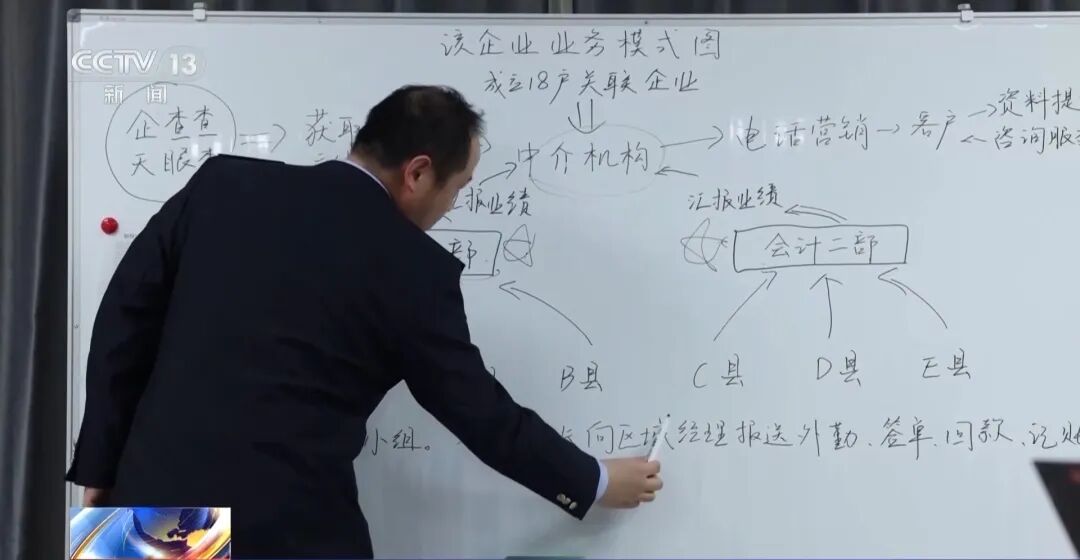 CCTV 13
新闻
该企业业务模式图
成立18户关联企业
企查查
天眼
获取
中介机构
电话营销
客户
资料提
咨询服
汇报业绩
汇报业绩
部
会计二部
B县
C县
D县
E县
小组。
向区域经理报送外勤、签单、回款、记账